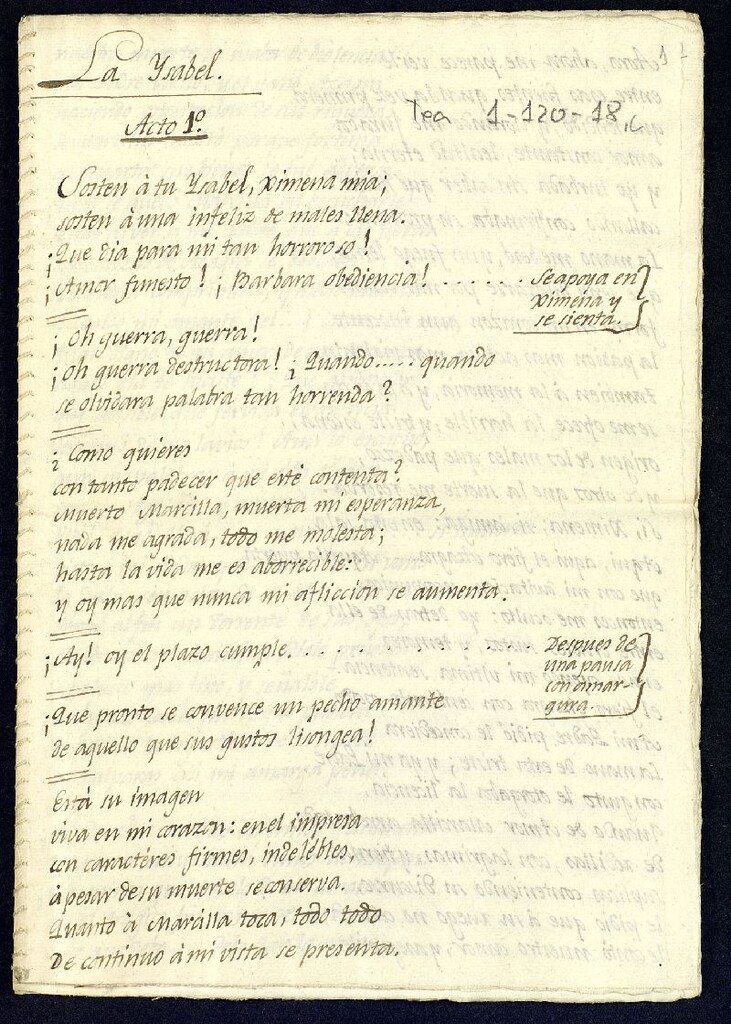 La Ysabel.
Acto 1º.
Tea 1-120-18,
Sosten à tu Ysabel, Ximena mia;
sosten à una infeliz de males llena.
¡Que dia para mi tan horroroso!
¡Amor funesto! ¡Barbara obediencia! ........
Se apoya en
Ximena y
se sienta.
¡Oh guerra, guerra!
¡Oh guerra destructora! ¿Quando..... quando
se olvidara palabra tan horrenda?
¿Como quieres
con tanto padecer que esté contenta?
Muerto Marcilla, muerta mi esperanza,
nada me agrada, todo me molesta;
hasta la vida me es aborrecible:
y oy mas que nunca mi afliccion se aumenta.
¡Ay! oy el plazo cumple. . . . . . . . . . . . .
Despues de
una pausa
con amar-
gura.
¡Que pronto se convence un pecho amante
de aquello que sus gustos lisongea!
Está su imagen
viva en mi corazon: en el impresa
con caractéres firmes, indelébles,
à pesar de su muerte se conserva.
Quanto à Marcilla toca, todo todo
De continuo à mi vista se presenta.